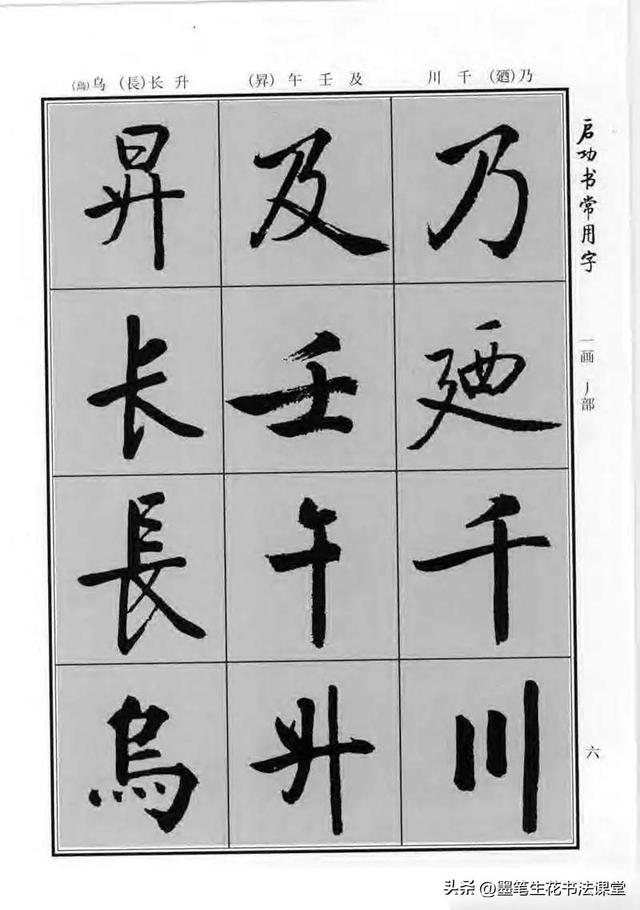 乃(廼) 千 川
及 壬 午 (昇)
升 长(長) 乌(烏)
启功书常用字
一画 丿部
乃 廼 千 川
及 壬 午 升
昇 长 長 烏
六
头条 @墨笔生花书法课堂